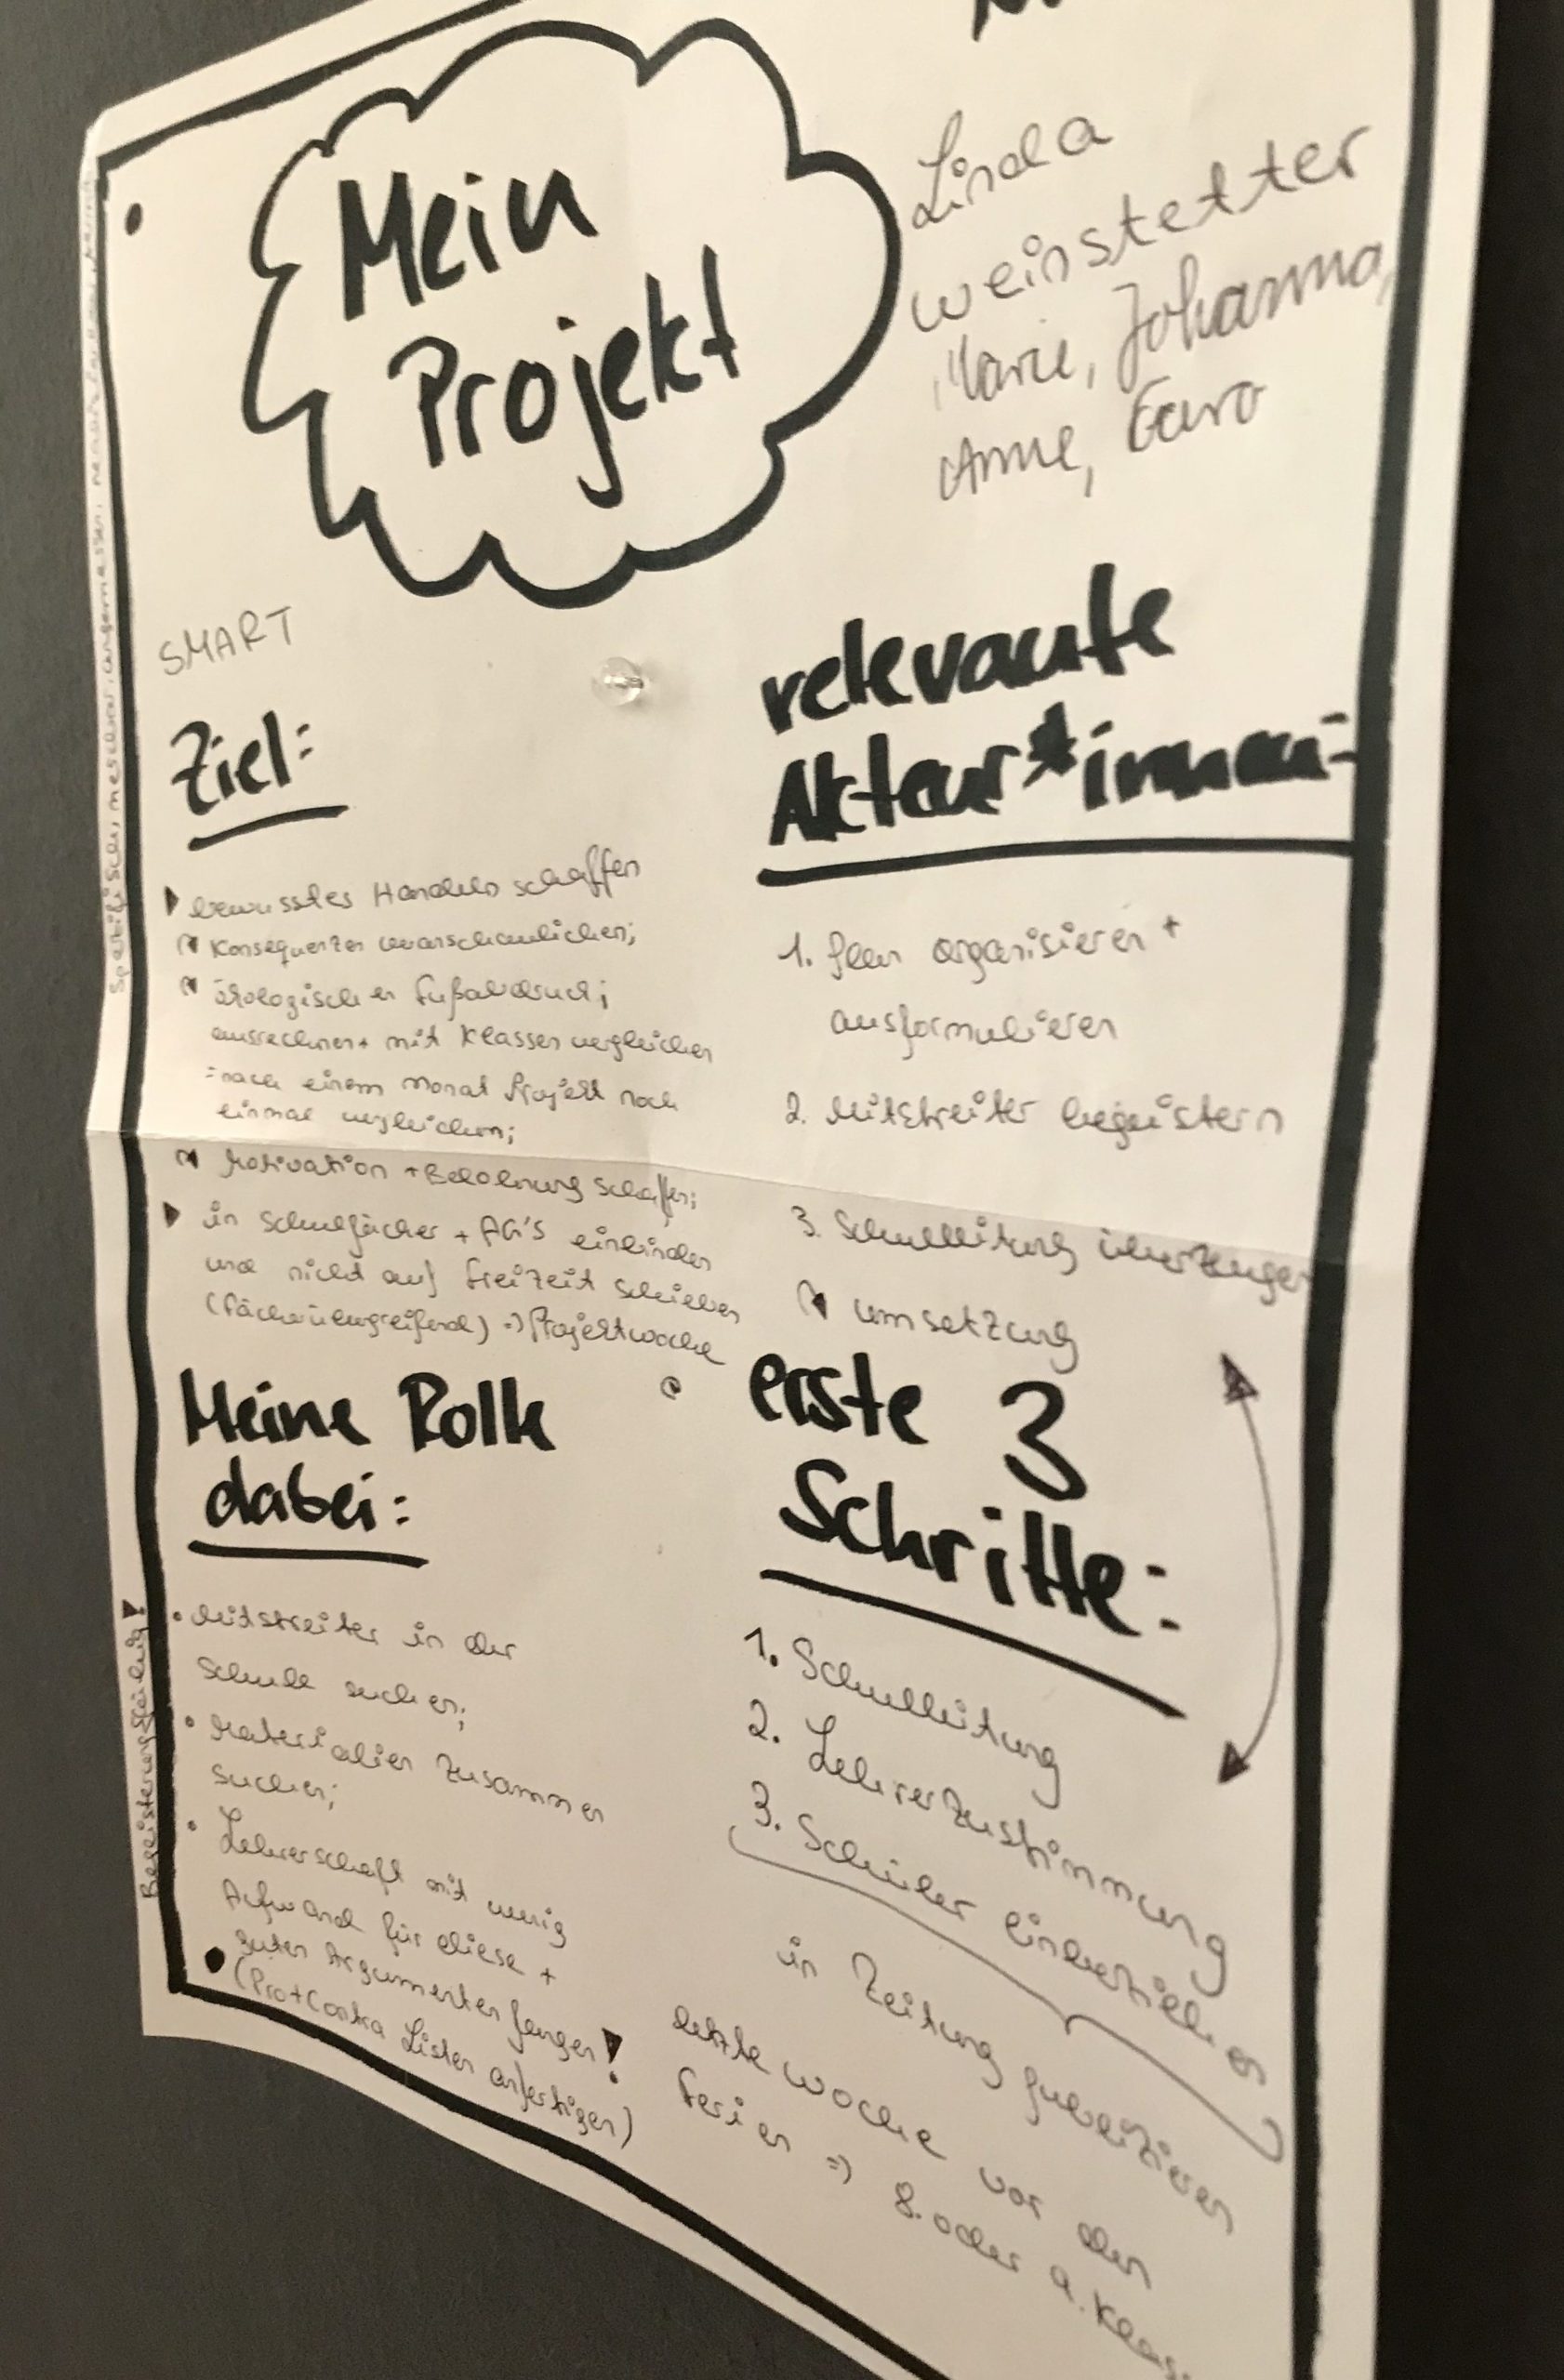 Mein
Projekt
Linda
weinstetter
Marie, Johanna,
Anne,
SMART
Ziel:
▶ bewusstes Handeln schaffen
Konsequenzen veranschaulichen;
ökologischer Fußabdruck;
ausrechnen + mit Klassen vergleichen
=nach einem Monat Projekt noch
einmal vergleichen;
Motivation + Belohnung schaffen;
▶ in Schulfächer + AG'S einbinden
und nicht auf Freizeit schieben
(Fächerübergreifend) => Projektwoche
relevante
Akteur*innen:
1. Plan organisieren +
ausformulieren
2. Mitstreiter begeistern
3. Schulleitung überzeugen
umsetzung
Meine Rolle
dabei:
• Mitstreiter in der
Schule suchen;
• Materialien zusammen
suchen;
• Lehrerschaft mit wenig
Aufwand für diese +
guten Argumenten fangen!
(Pro+Contra Listen anfertigen)
erste 3
Schritte:
1. Schulleitung
2. Lehrerzustimmung
3. Schüler einbeziehen
in Zeitung publizieren
letzte woche vor den
Ferien => 8. oder 9. Klas
Spezifisch, messbar, angemessen,
Begeisterungsfähig!